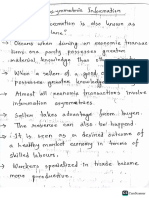 Asymmetric Information
information is also known as
→ Occurs when during an economic transac
tions one party possesses greater
material knowledge than
→ When a seller of a good
possesses greater knowledge
→ Almost all economic transactions involve
information asymmetries.
→ Sellers takes advantage from buyer.
→ The reverse can also be happen
→ It is seen as a desired outcome of
a healthy market economy in terms of
skilled labours.
→ Workers specialized in trade become
more productive.
CamScanner